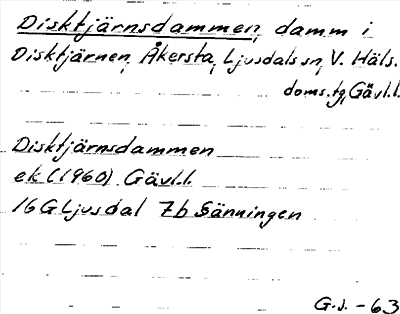 Disktjärnsdammen, damm i
Disktjärnen, Åkersta, Ljusdals sn, V. Häls.
doms.tg, Gävl.l.
Disktjärnsdammen
ek (1960) Gävl.l.
16 G Ljusdal 7b Sänningen
G.J. - 63